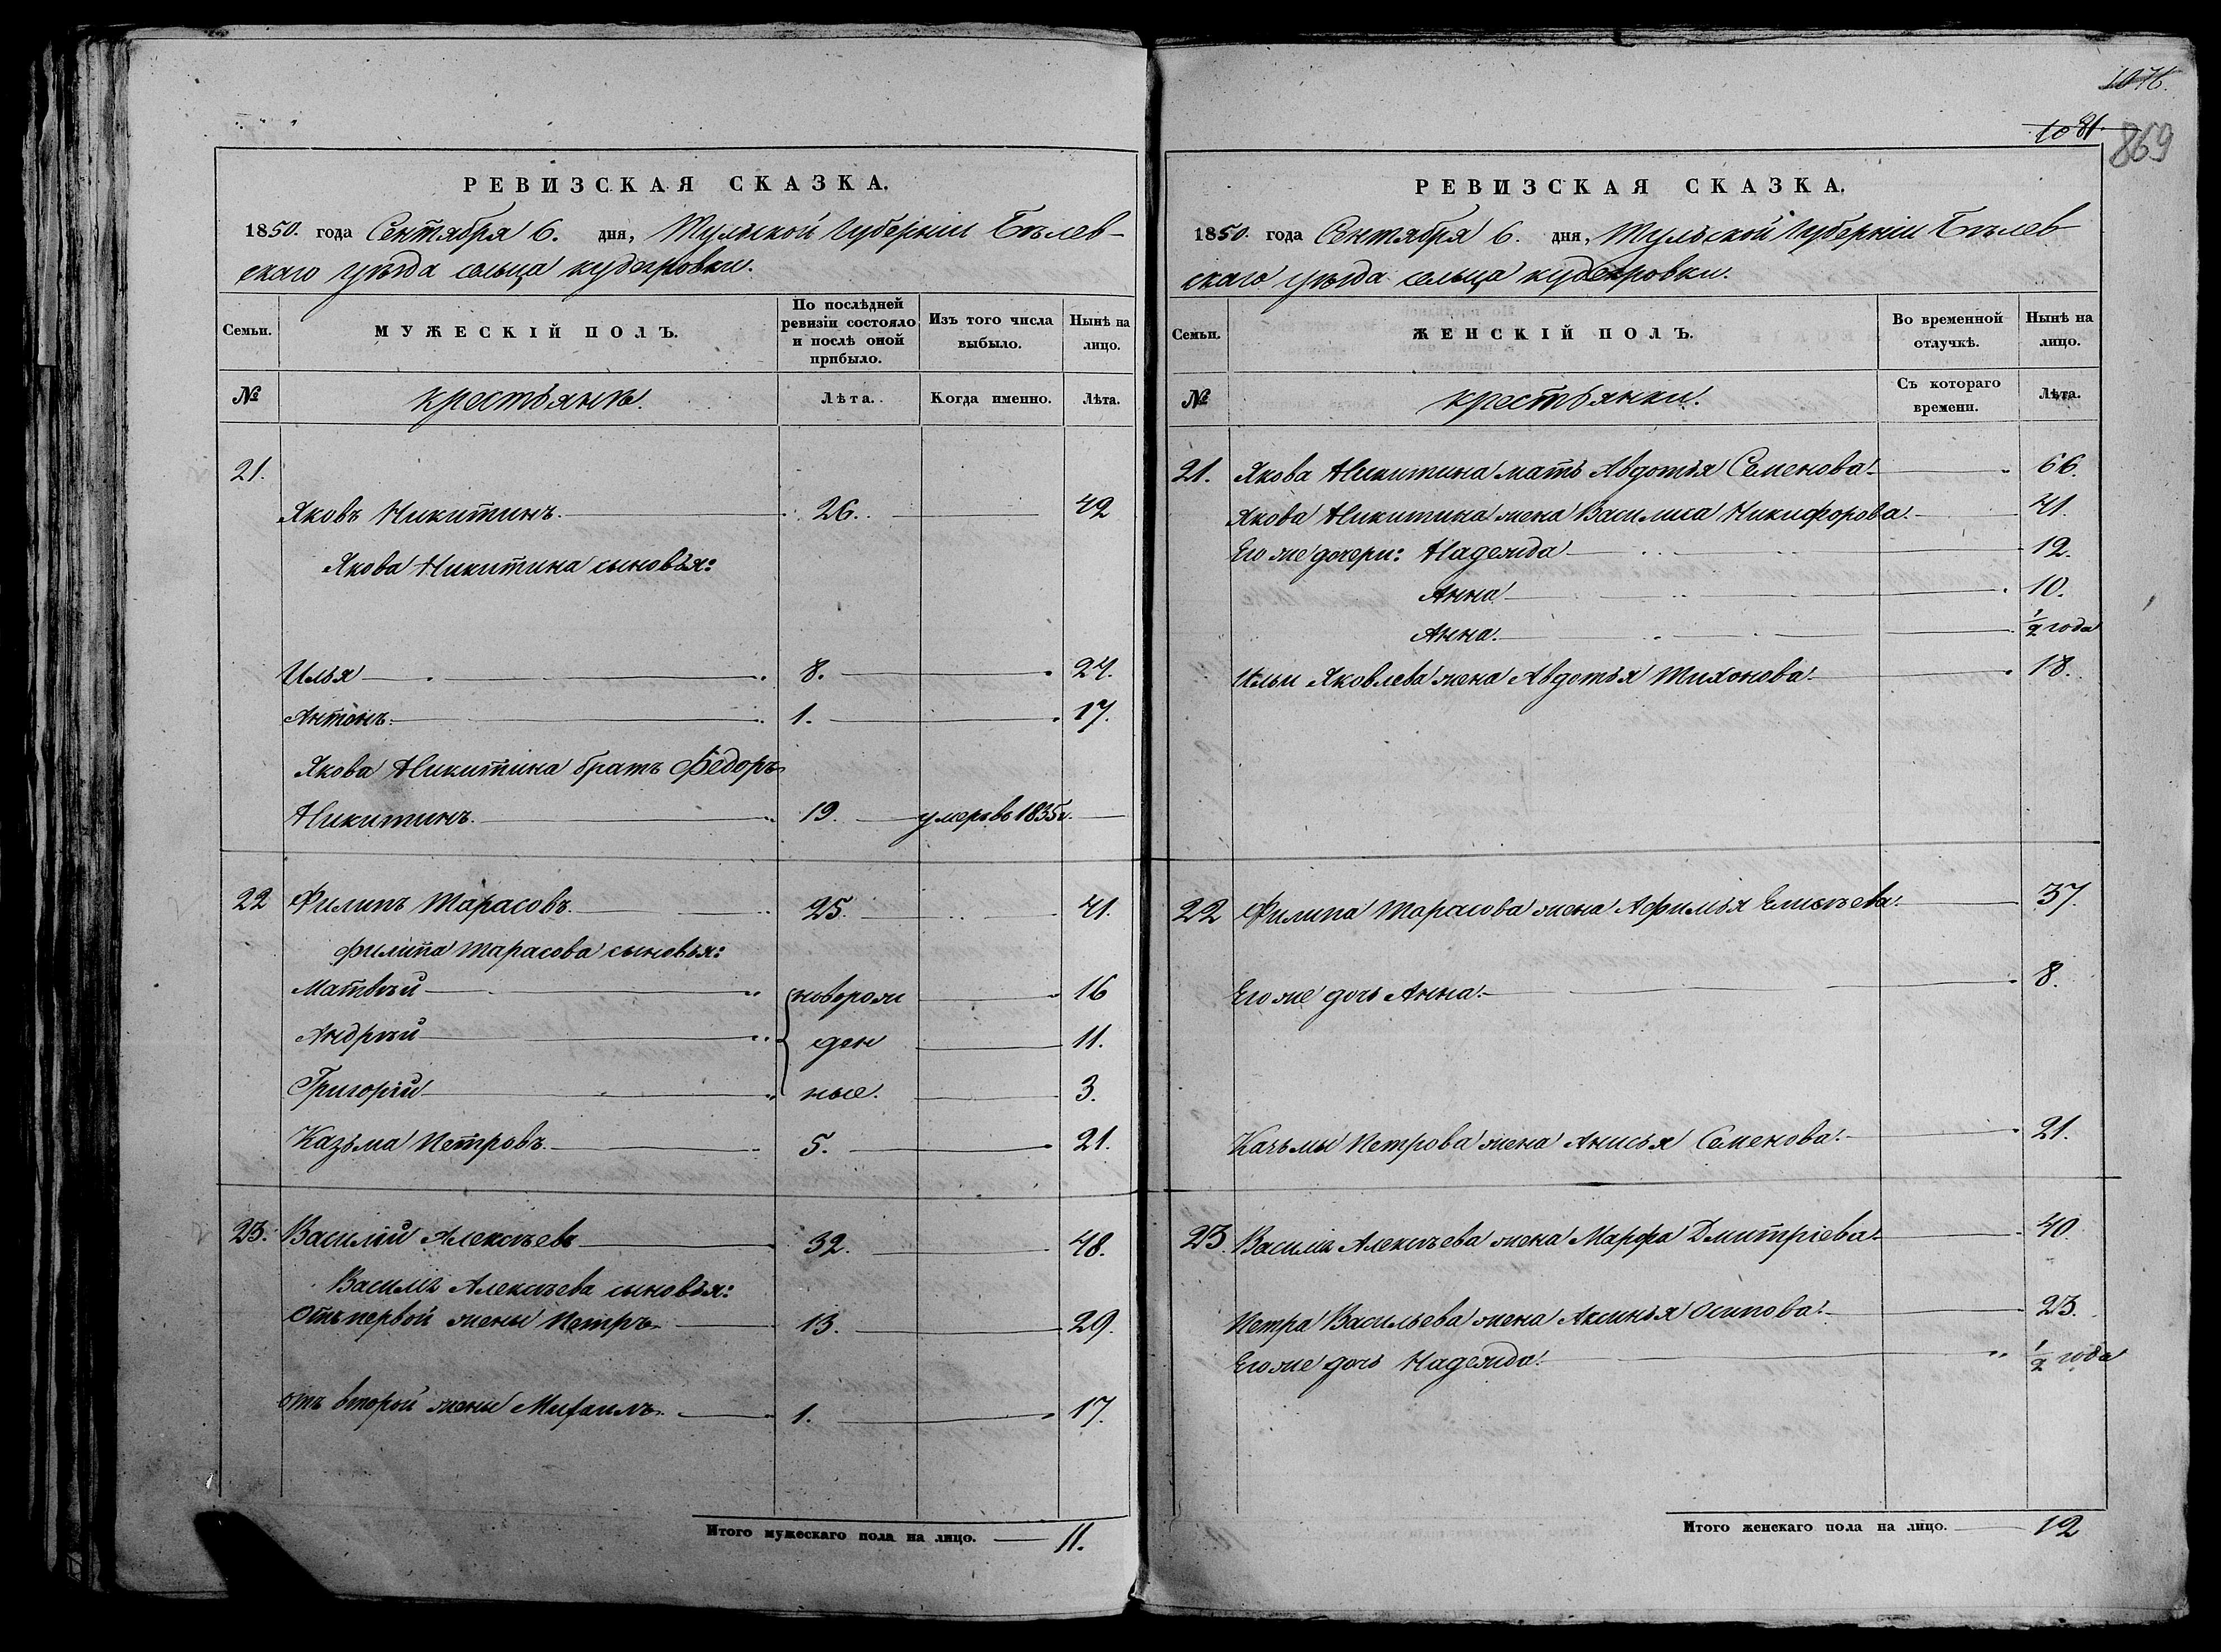 РЕВИЗСКАЯ СКАЗКА.
1850. года Сентября 6. дня, Тульской Губерніи Бѣлев-
скаго уѣзда сельца
Семьи.
МУЖЕСКІЙ ПОЛЪ.
По послѣдней ревизіи состояло и послѣ оной прибыло.
Изъ того числа выбыло.
Нынѣ на лицо.
№
крестьянъ.
Лѣта.
Когда именно.
Лѣта.
21.
Яковъ Никитинъ. 26. 42
Якова Никитина сыновья:
Илья 8. 24.
Антонъ. 1. 17.
Якова Никитина братъ Федоръ
Никитинъ. 19. умеръ въ 1835 г.
22 Филипъ Тарасовъ. 25. 41.
Филипа Тарасова сыновья:
Матвѣй новорож 16
Андрѣй ден 11.
Григорій ные. 3.
Казьма Петровъ. 5. 21.
23. Василій Алексѣевъ 32. 48.
Василія Алексѣева сыновья:
Отъ первой жены Петръ. 13. 29.
отъ второй жены Михаилъ. 1. 17.
Итого мужескаго пола на лицо. 11.
1076.
1081.
869
РЕВИЗСКАЯ СКАЗКА.
1850. года Сентября 6. дня, Тульской Губерніи Бѣлев
скаго уѣзда сельца
Семьи.
ЖЕНСКІЙ ПОЛЪ.
Во временной отлучкѣ.
Нынѣ на лицо.
№
крестьянки.
Съ котораго времени.
Лѣта.
21. Якова Никитина мать Авдотья Семенова. 66.
Якова Никитина жена Василиса Никифорова. 41.
Его же дочери: Надежда 12.
Анна 10.
Анна. 1/2 года
Ильи Яковлева жена Авдотья Тихонова. 18.
22 Филипа Тарасова жена Афимья Елисѣева. 37.
Его же дочь Анна. 8.
Казьмы Петрова жена Анисья Семенова. 21.
23. Василія Алексѣева жена Марфа Дмитріева. 40
Петра Васильева жена Аксинья Осипова. 23.
Его же дочь Надежда. 1/2 года
Итого женскаго пола на лицо. 12